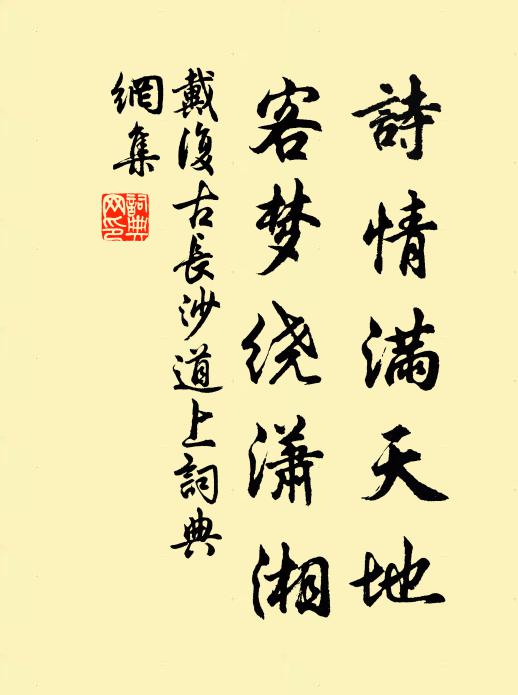 詩情満天地
客梦绕潇湘
戴復古長沙道上詞典
網集
詞典
网印